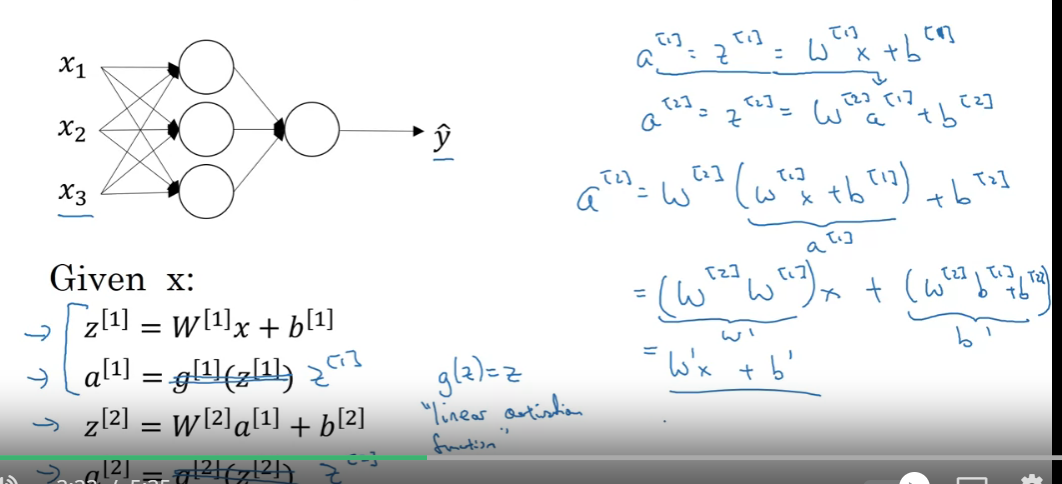 x₁
x₂
x₃
ŷ
Given x:
→ z^[1] = W^[1]x + b^[1]
→ a^[1] = g^[1](z^[1]) z^[1]
→ z^[2] = W^[2]a^[1] + b^[2]
→ a^[2] = g^[2](z^[2]) z^[2]
g(z) = z
"linear activation
function"
a^[1] = z^[1] = W^[1]x + b^[1]
a^[2] = z^[2] = W^[2]a^[1] + b^[2]
a^[2] = W^[2](W^[1]x + b^[1]) + b^[2]
a^[1]
= (W^[2]W^[1])x + (W^[2]b^[1] + b^[2])
W' b'
= W'x + b'